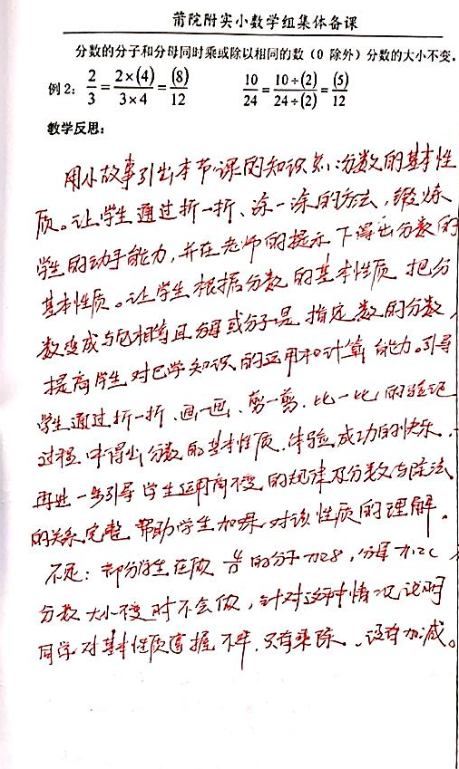 莆院附实小数学组集体备课
分数的分子和分母同时乘或除以相同的数（0 除外）分数的大小不变.
例2: 2/3 = 2×(4)/3×4 = (8)/12    10/24 = 10÷(2)/24÷(2) = (5)/12
教学反思:
用小故事引出本节课的知识点:分数的基本性
质。让学生通过折一折、涂一涂的方法,锻炼
学生的动手能力,并在老师的提示下得出分数的
基本性质。让学生根据分数的基本性质 把分
数变成与它相等且分母或分子是 指定数的分数,
提高学生对已学知识的运用和计算能力。引导
学生通过折一折、画一画、剪一剪、比一比的验证
过程 中得出分数的基本性质,体验成功的快乐.
再进一步引导学生运用商不变的规律及分数与除法
的关系完整 帮助学生加深对该性质的理解.
不足: 部分学生在做 的分子加28, 分母加
分数大小不变时不会做, 针对这种情况说明
同学对基本性质掌握不牢.只有乘除、没有加减。